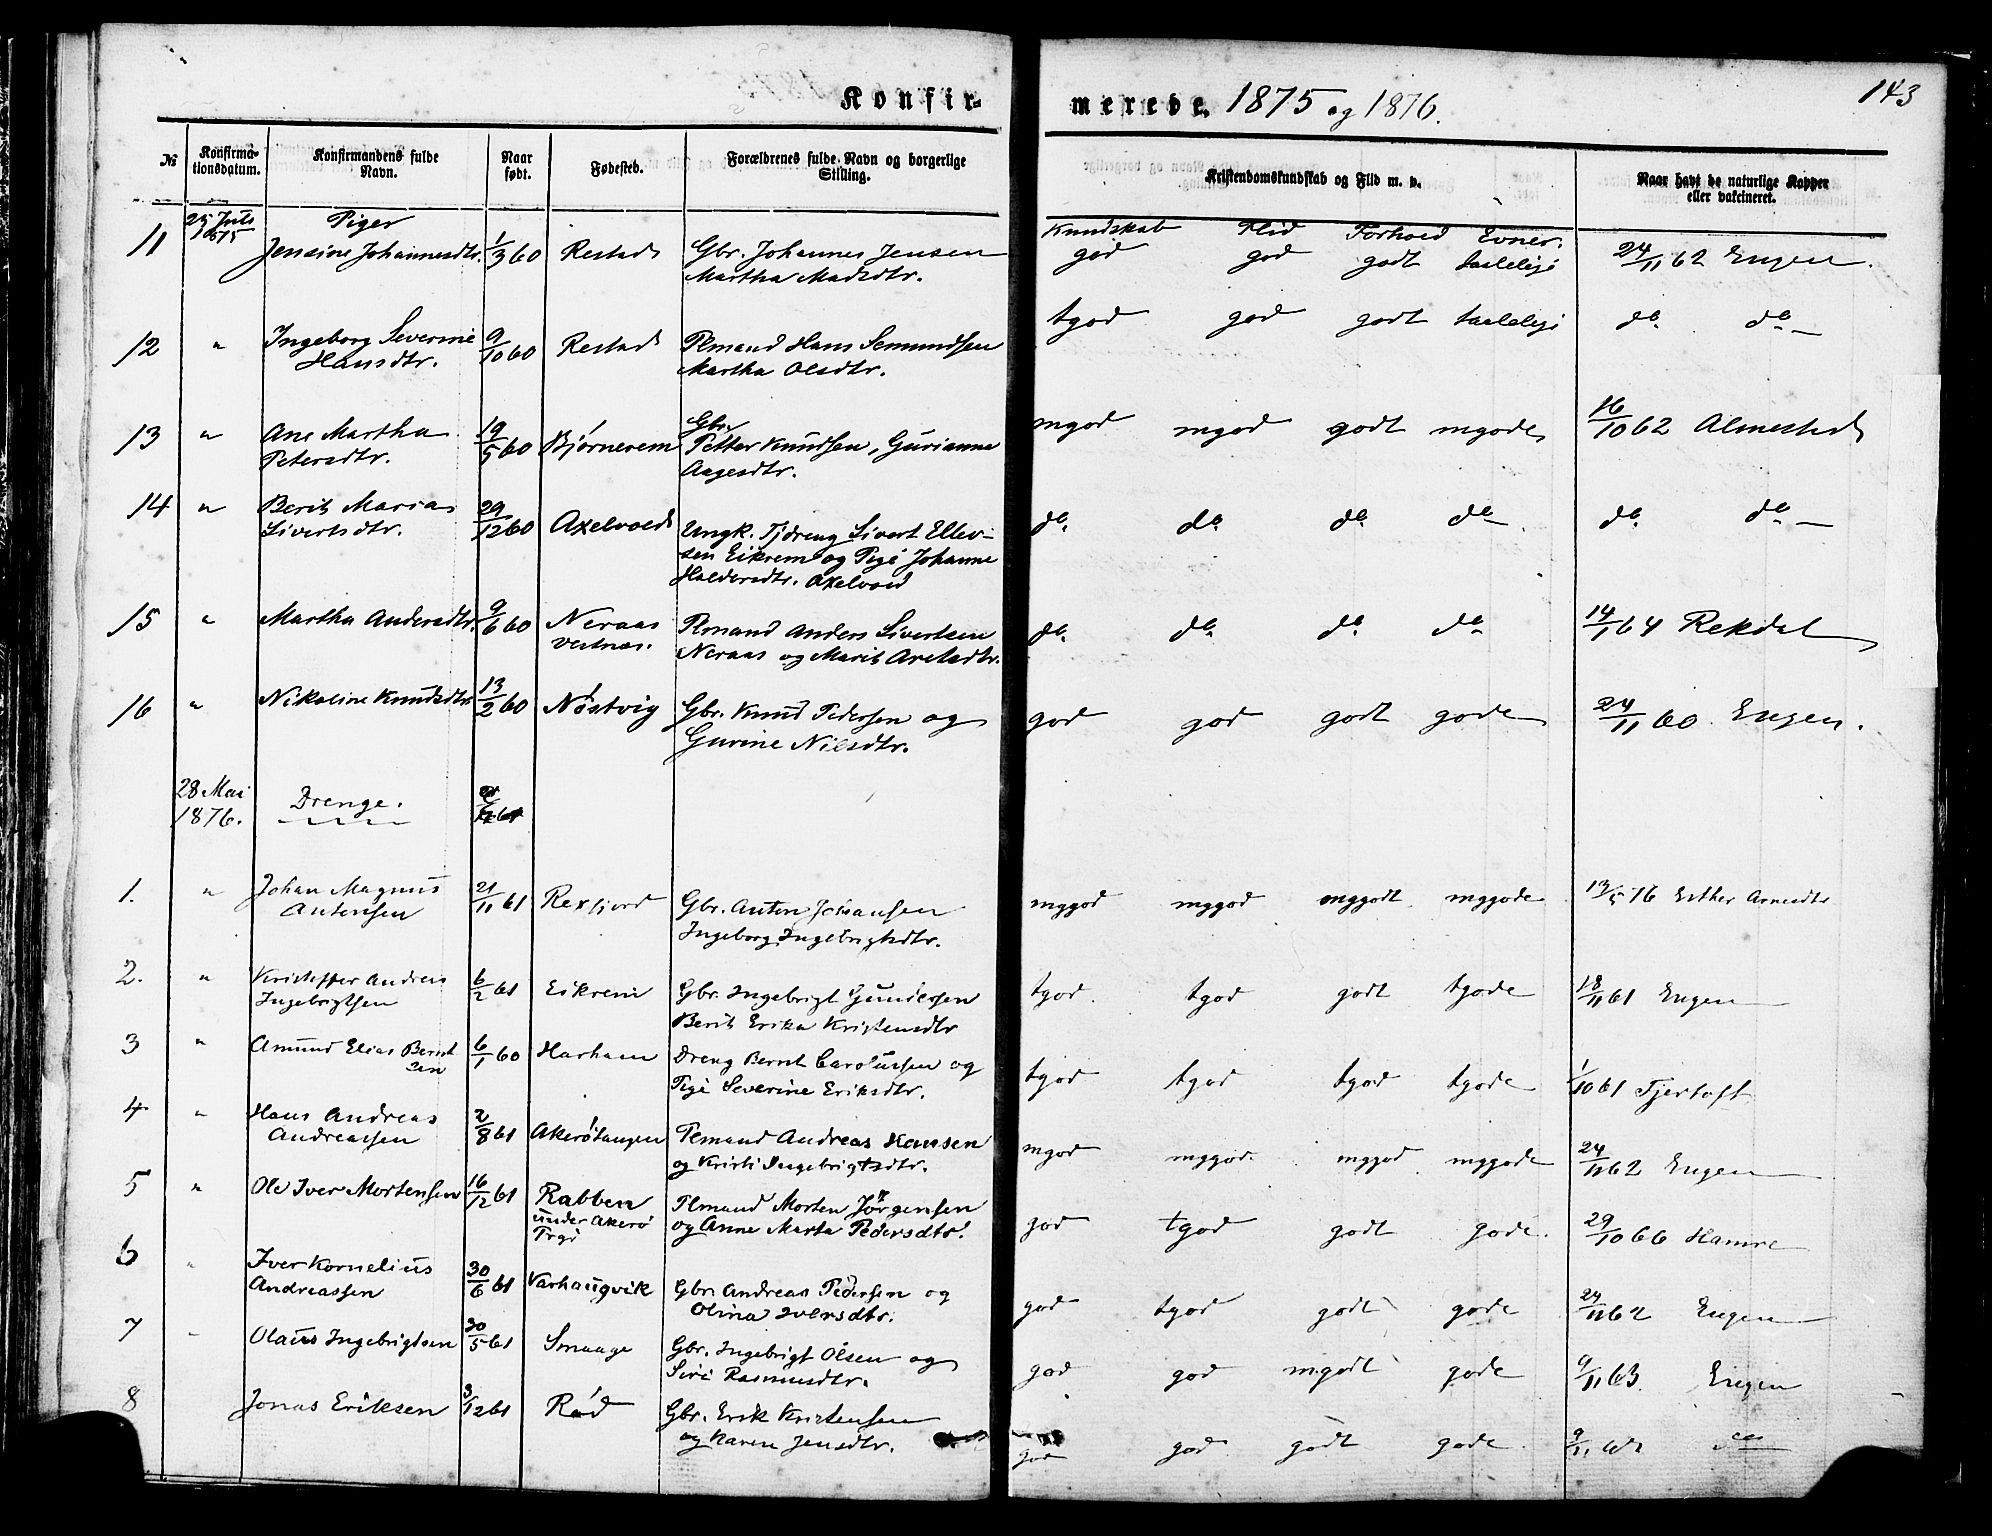 Konfir-
merede. 1875 og 1876.
143
№ Konfirma-tionsdatum. Konfirmandens fulde Navn. Naar født. Fødested. Forældrenes fulde Navn og borgerlige Stilling. Kristendomskundskab og Flid m. v. Naar havt de naturlige Kopper eller vaccineret.
25 Juli 1875 Piger Kundskab Flid Forhold Evner.
11 Jensine Johannesdtr. 1/3 60 Restad Gbr. Johannes Jensen god god godt taalelige 24/11 62 Engen.
Martha Madsdtr.
12 " Ingeborg Severine 9/10 60 Restad Plmand Hans Semundsen tgod god godt taalelige do. do.
Hansdtr. Martha Olsdtr.
13 " Ane Martha 19/5 60 Bjørnerem Gbr. mgod mgod godt mgode 16/10 62 Almestad
Petersdtr. Petter Knudsen, Gurianna
Aagesdtr.
14 " Berit Maria 29/12 60 Axelvold Ungk. Tjdreng Sivert Ellev- do. do. do. do. do. do.
Sivertsdtr. sen Eikrem og Pige Johanne
Haldorsdtr. Axelvold
15 " Martha Andersdtr. 9/6 60 Neraas Plmand Anders Sivertsen do. do. do. do. 14/1 64 Rekdal
Vestnæs. Neraas og Marit Arstadtr.
16 " Nikoline Knudsdtr 13/2 60 Nøstvig Gbr. Knud Pedersen og god god godt gode 24/11 60 Engen.
Gurine Nilsdtr.
28 Mai Drenge.
1876.
1. " Johan Magnus 21/11 61 Rexfjord Gbr. Anton Johansen mggod mggod mggodt mggode 13/5 76 Esther Arnesdtr
Antonsen Ingeborg Ingebrigtsdtr.
2. " Kristoffer Andreas 6/2 61 Eikrem Gbr. Ingebrigt Gundersen tgod tgod godt tgode 18/11 61 Engen
Ingebrigtsen Berit Erika Kristensdtr
3 " Amund Elias Bernt 6/1 60 Harham Dreng Bernt Carolussen og tgod tgod tgod tgode 1/10 61 Fjertoft
sen Pige Severine Eriksdtr.
4 " Hans Andreas 2/8 61 Akerøtangen Plmand Andreas Hansen mgod mggod mggod mggode 24/11 62 Engen
Andreassen og Kristi Ingebrigtsdtr.
5 " Ole Iver Mortensen 16/12 61 Rabben Plmand Morten Jørgensen god tgod godt gode. 29/10 66 Hamre
under Akerø og Anne Marta Pedersdtr.
6 " Iver Kornelius 30/6 61 Varhaugvik Gbr. Andreas Pedersen og god tgod godt gode 24/11 62 Engen
Andreassen Olina Iversdtr.
7 " Olaus Ingebrigtsen 30/5 61 Smaage Gbr. Ingebrigt Olsen og god god mgodt gode 9/11 63 Engen
Siri Rasmusdtr.
8 Jonas Eriksen 3/12 61 Rød Gbr. Erik Kristensen god god godt gode
og Karen Jensdtr.